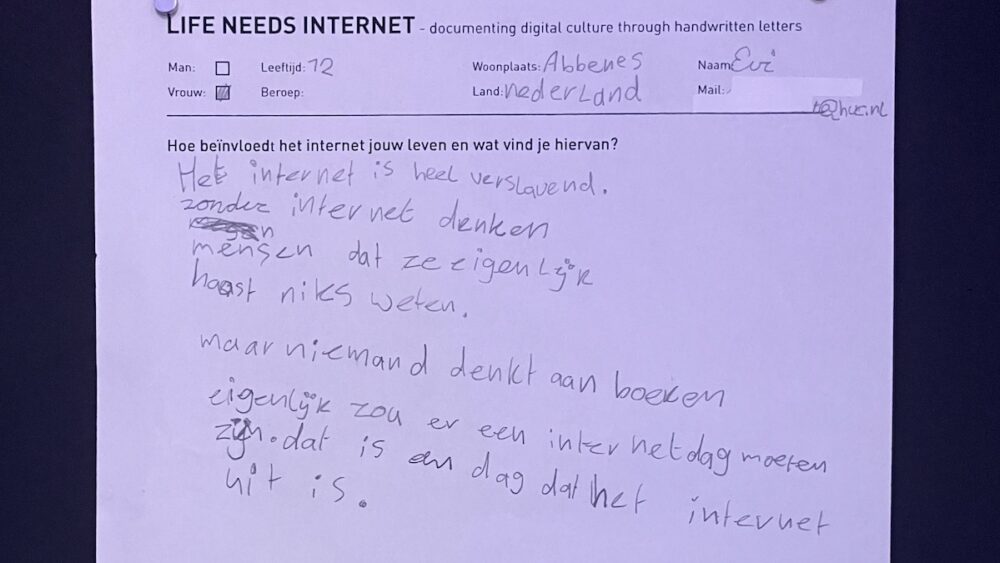 LIFE NEEDS INTERNET - documenting digital culture through handwritten letters
Man: Leeftijd: 12 Woonplaats: Abbenes Naam: Evi
Vrouw: Beroep: Land: nederland Mail:
@hvc.nl
Hoe beïnvloedt het internet jouw leven en wat vind je hiervan?
Het internet is heel verslavend.
zonder internet denken
mensen dat ze eigenlijk
haast niks weten.
maar niemand denkt aan boeken
eigenlijk zou er een internetdag moeten
zijn. dat is een dag dat het internet
uit is.